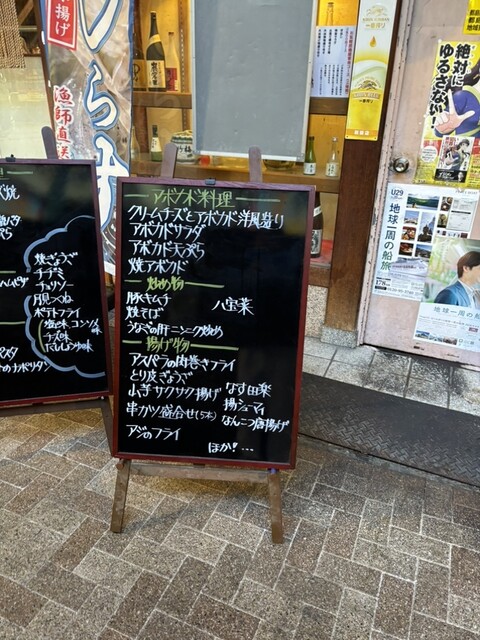 アボカド料理
クリームチーズとアボカド洋風造り
アボカドサラダ
アボカド天ぷら
焼アボカド
炒め物
豚キムチ
八宝菜
焼そば
うなぎの肝ニンニク炒め
揚げ物
アスパラの肉巻きフライ
とり皮ぎょうざ
山芋サクサク揚げ
なす田楽
串カツ盛合せ(5本)
揚シューマイ
アジのフライ
なんこつ唐揚げ
ほか!…
焼ぎょうざ
チヂミ
チョリソー
月見つくね
ポテトフライ
塩味
コンソメ味
チーズ味
漁師直送
絶対に
ゆるさない!
U29
地球一周の船旅
地球一周の船